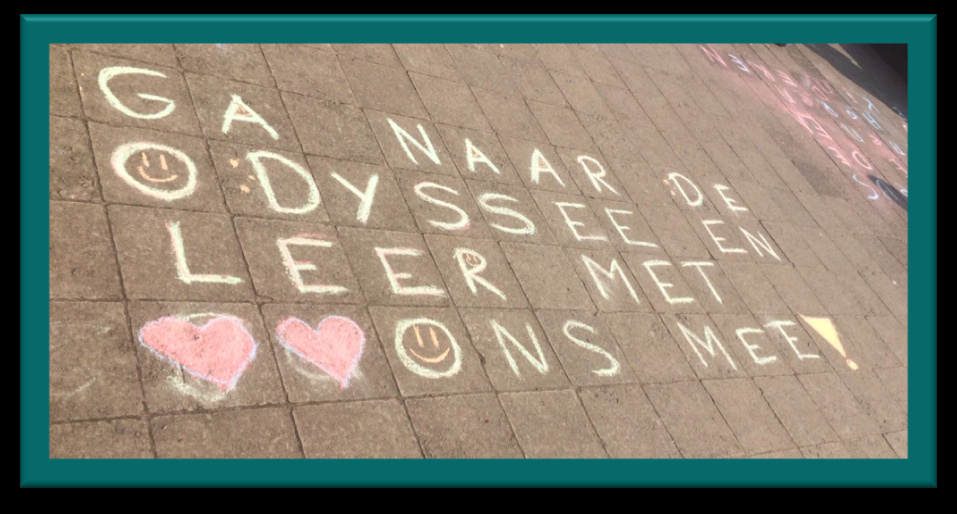 GA NAAR DE
ODYSSEE EN
LEER MET
ONS MEE!